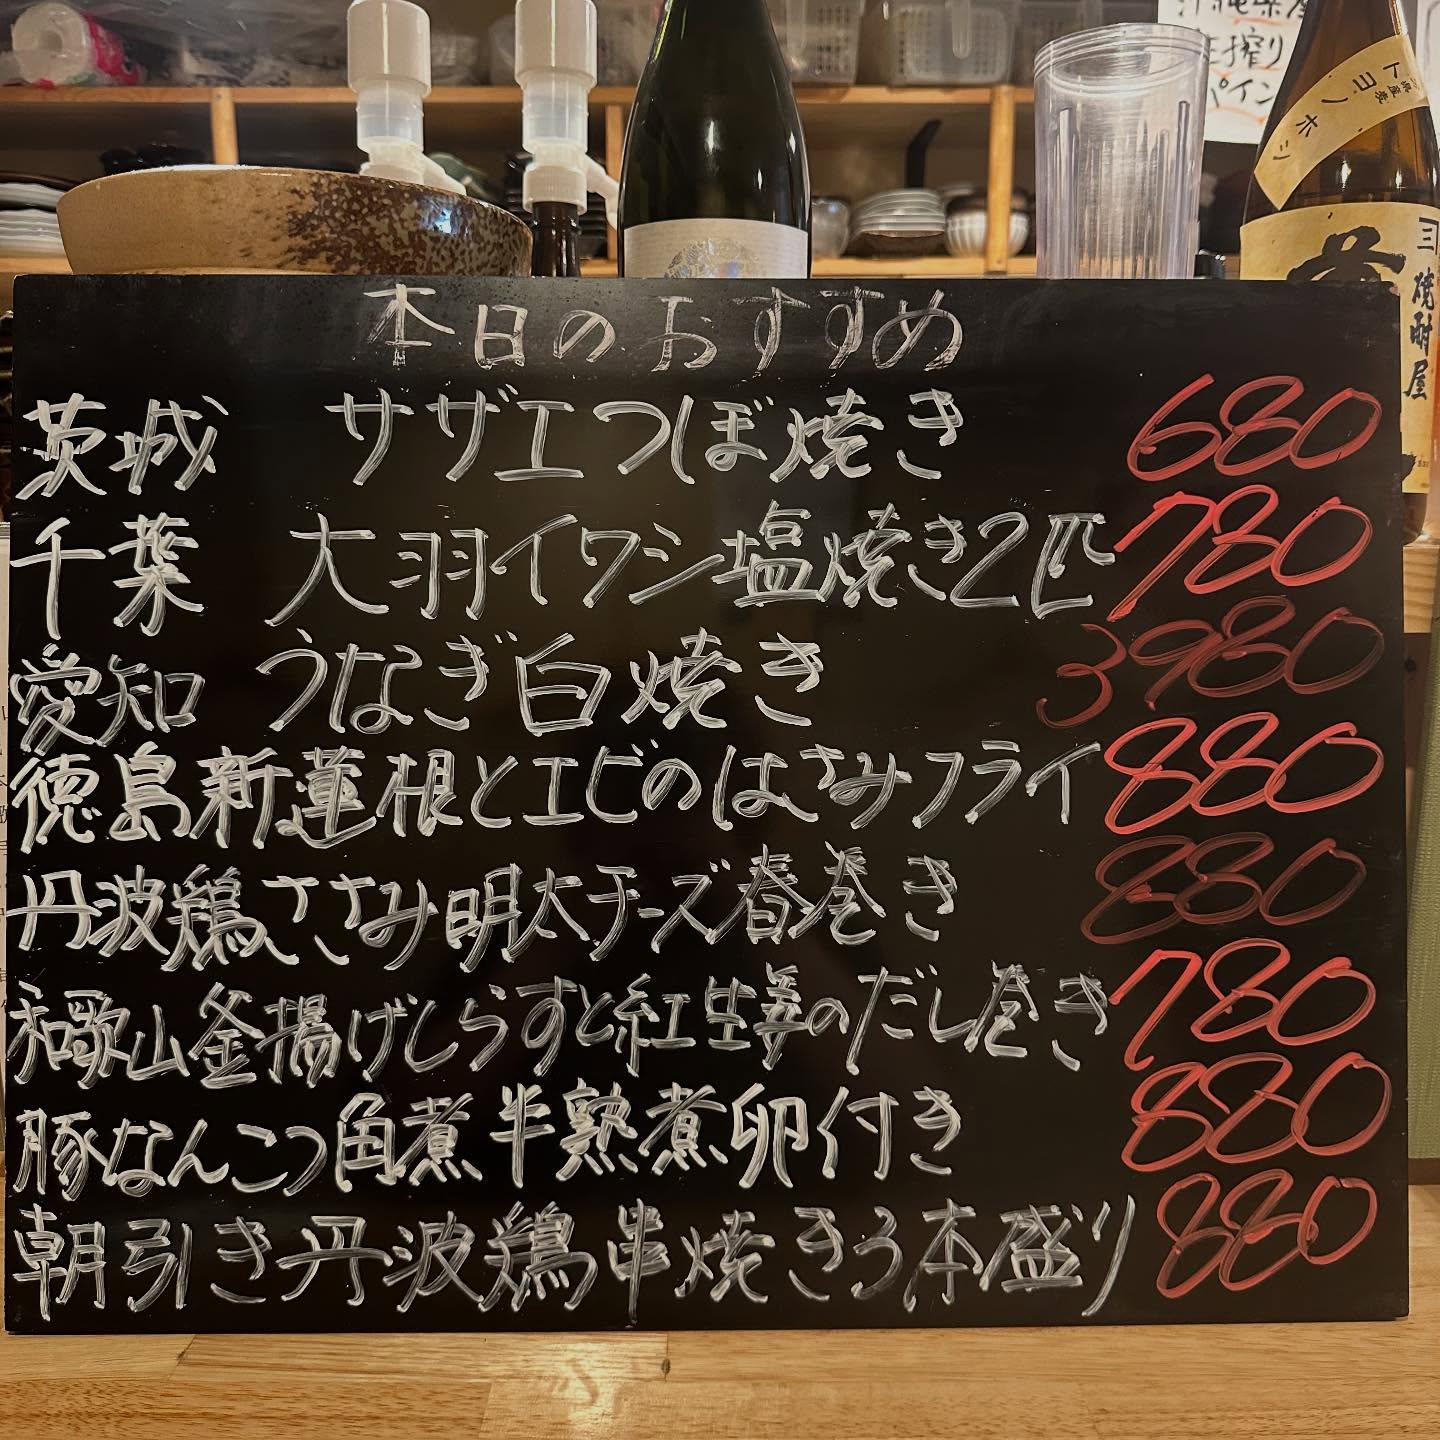 本日のおすすめ
茨城 サザエつぼ焼き 680
千葉 大羽イワシ塩焼き2匹 780
愛知 うなぎ白焼き 3980
徳島新蓮根とエビのはさみフライ 880
丹波鶏ささみ明太チーズ春巻き 880
和歌山釜揚げしらすと紅生姜のだし巻き 780
豚なんこつ角煮半熟煮卵付き 880
朝引き丹波鶏串焼き3本盛り 880
搾り
パイン
トヨノホシ
三
焼酎屋